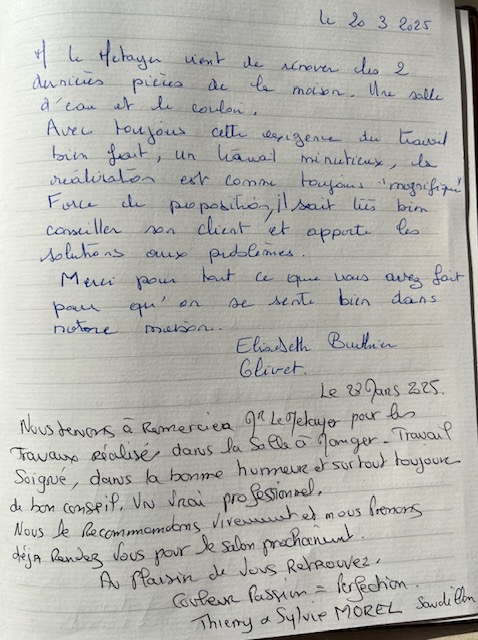 Le 20 3 2025
M Le Metayer vient de rénover les 2
dernières pièces de la maison. Une salle
d'eau et le couloir.
Avec toujours cette exigence du travail
bien fait, un travail minutieux, la
réalisation est comme toujours "magnifique"
Force de proposition, il sait très bien
conseiller son client et apporte les
solutions aux problèmes.
Merci pour tout ce que vous avez fait
pour qu'on se sente bien dans
notore maison.
Elisabeth
Olivet.
Le 28 Mars 2025.
Nous tenons à Remercier Mr Le Metayer pour les
Travaux réalisés dans la Salle à Manger. Travail
Soigné, dans la bonne humeur et surtout toujours
de bon conseil. Un vrai professionnel.
Nous le Recommandons vivement et nous Prenons
déjà Rendez Vous pour le salon prochainement.
Au Plaisir de Vous Retrouvez.
Couleur Passion = Perfection.
Thierry & Sylvie MOREL Sandillon